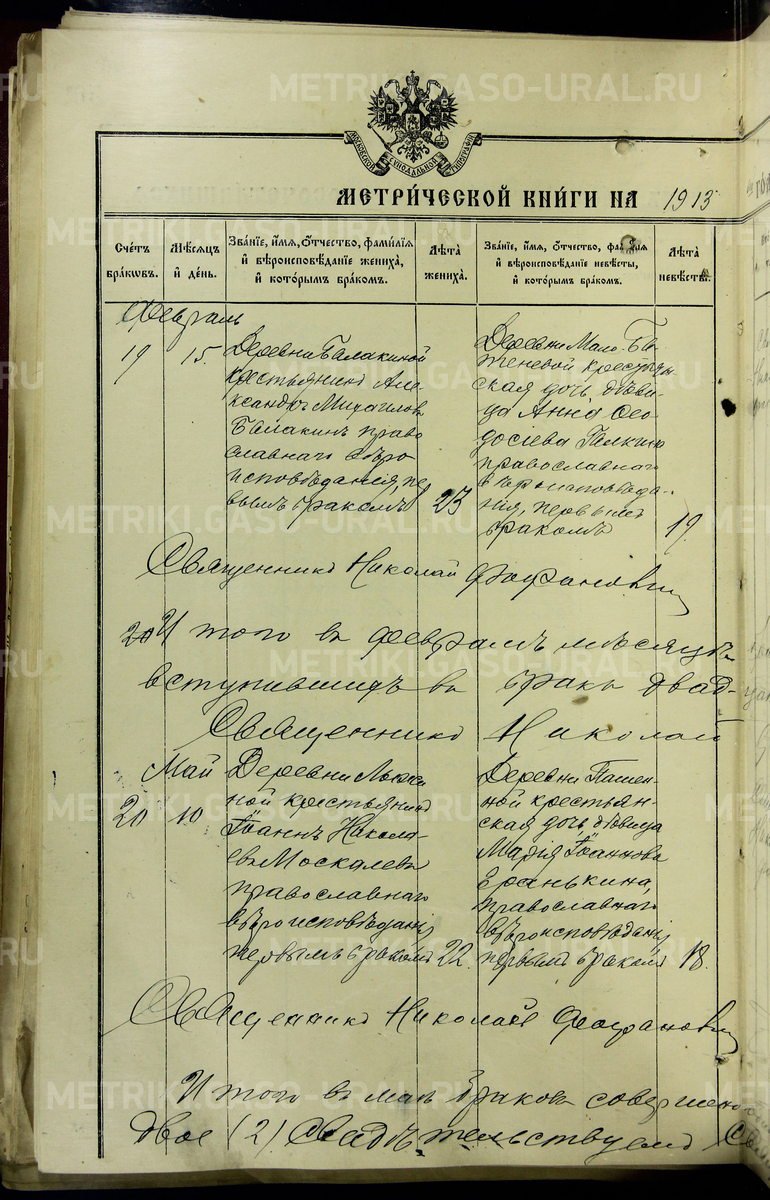 METRIKI.GASO-URAL.RU
МОСКОВСКОЙ СѴНОДАЛЬНОЙ ТИПОГРАФІИ
МЕТРИ́ЧЕСКОЙ КНИ́ГИ НА 1913
Сче́тъ бра́кѡвъ.
Мѣ́сѧцъ и҆ де́нь.
Зва́нїе, и҆́мѧ, ѻ҆́тчество, фами́лїѧ и҆ вѣроисповѣ́данїе жениха̀, и҆ кото́рымъ бра́комъ.
Лѣ́та жениха̀.
Зва́нїе, и҆́мѧ, ѻ҆́тчество, фами́лїѧ и҆ вѣроисповѣ́данїе невѣ́сты, и҆ кото́рымъ бра́комъ.
Лѣ́та невѣ́сты.
Февраль
19
15.
Деревни Балакиной
крестьянинъ Але-
ксандръ Михаиловъ
Балакинъ право
славнаго вѣро
исповѣданія, пе
вымъ бракомъ
23
Деревни Мало-Ба-
женевой крестьян
ская дочь, дѣви-
ца Анна Ѳео-
досіева Галкина
православнаго
вѣроисповѣда-
нія, первымъ
бракомъ
19
Священникъ Николай
Итого въ Февралѣ мѣсяцѣ
вступившихъ въ браки двад-
Священникъ Николай
Май
20
10
Деревни
ной крестьянинъ
Іоаннъ Никола-
евъ Москалевъ
православнаго
вѣроисповѣданія
первымъ бракомъ
22.
Деревни
ной крестьян-
ская дочь, дѣвица
Марія Іоаннова
Еранькина,
православнаго
вѣроисповѣданія
первымъ бракомъ
18.
Священникъ Николай
Итого въ маѣ браковъ совершено
двое (2) Свидѣтельствуемъ